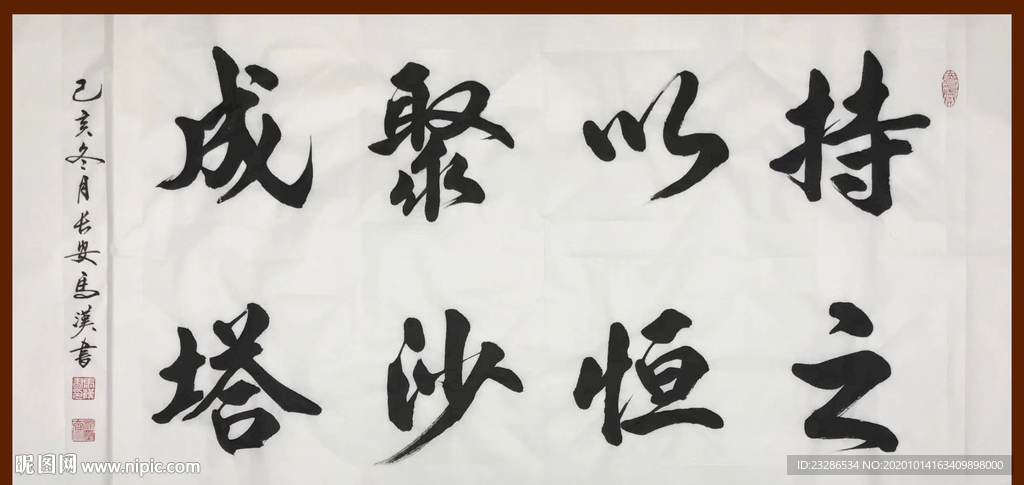 持之
以恒
聚沙
成塔
己亥冬月长安马漢书
昵图网 www.nipic.com
ID:23286534 NO:20201014163409898000